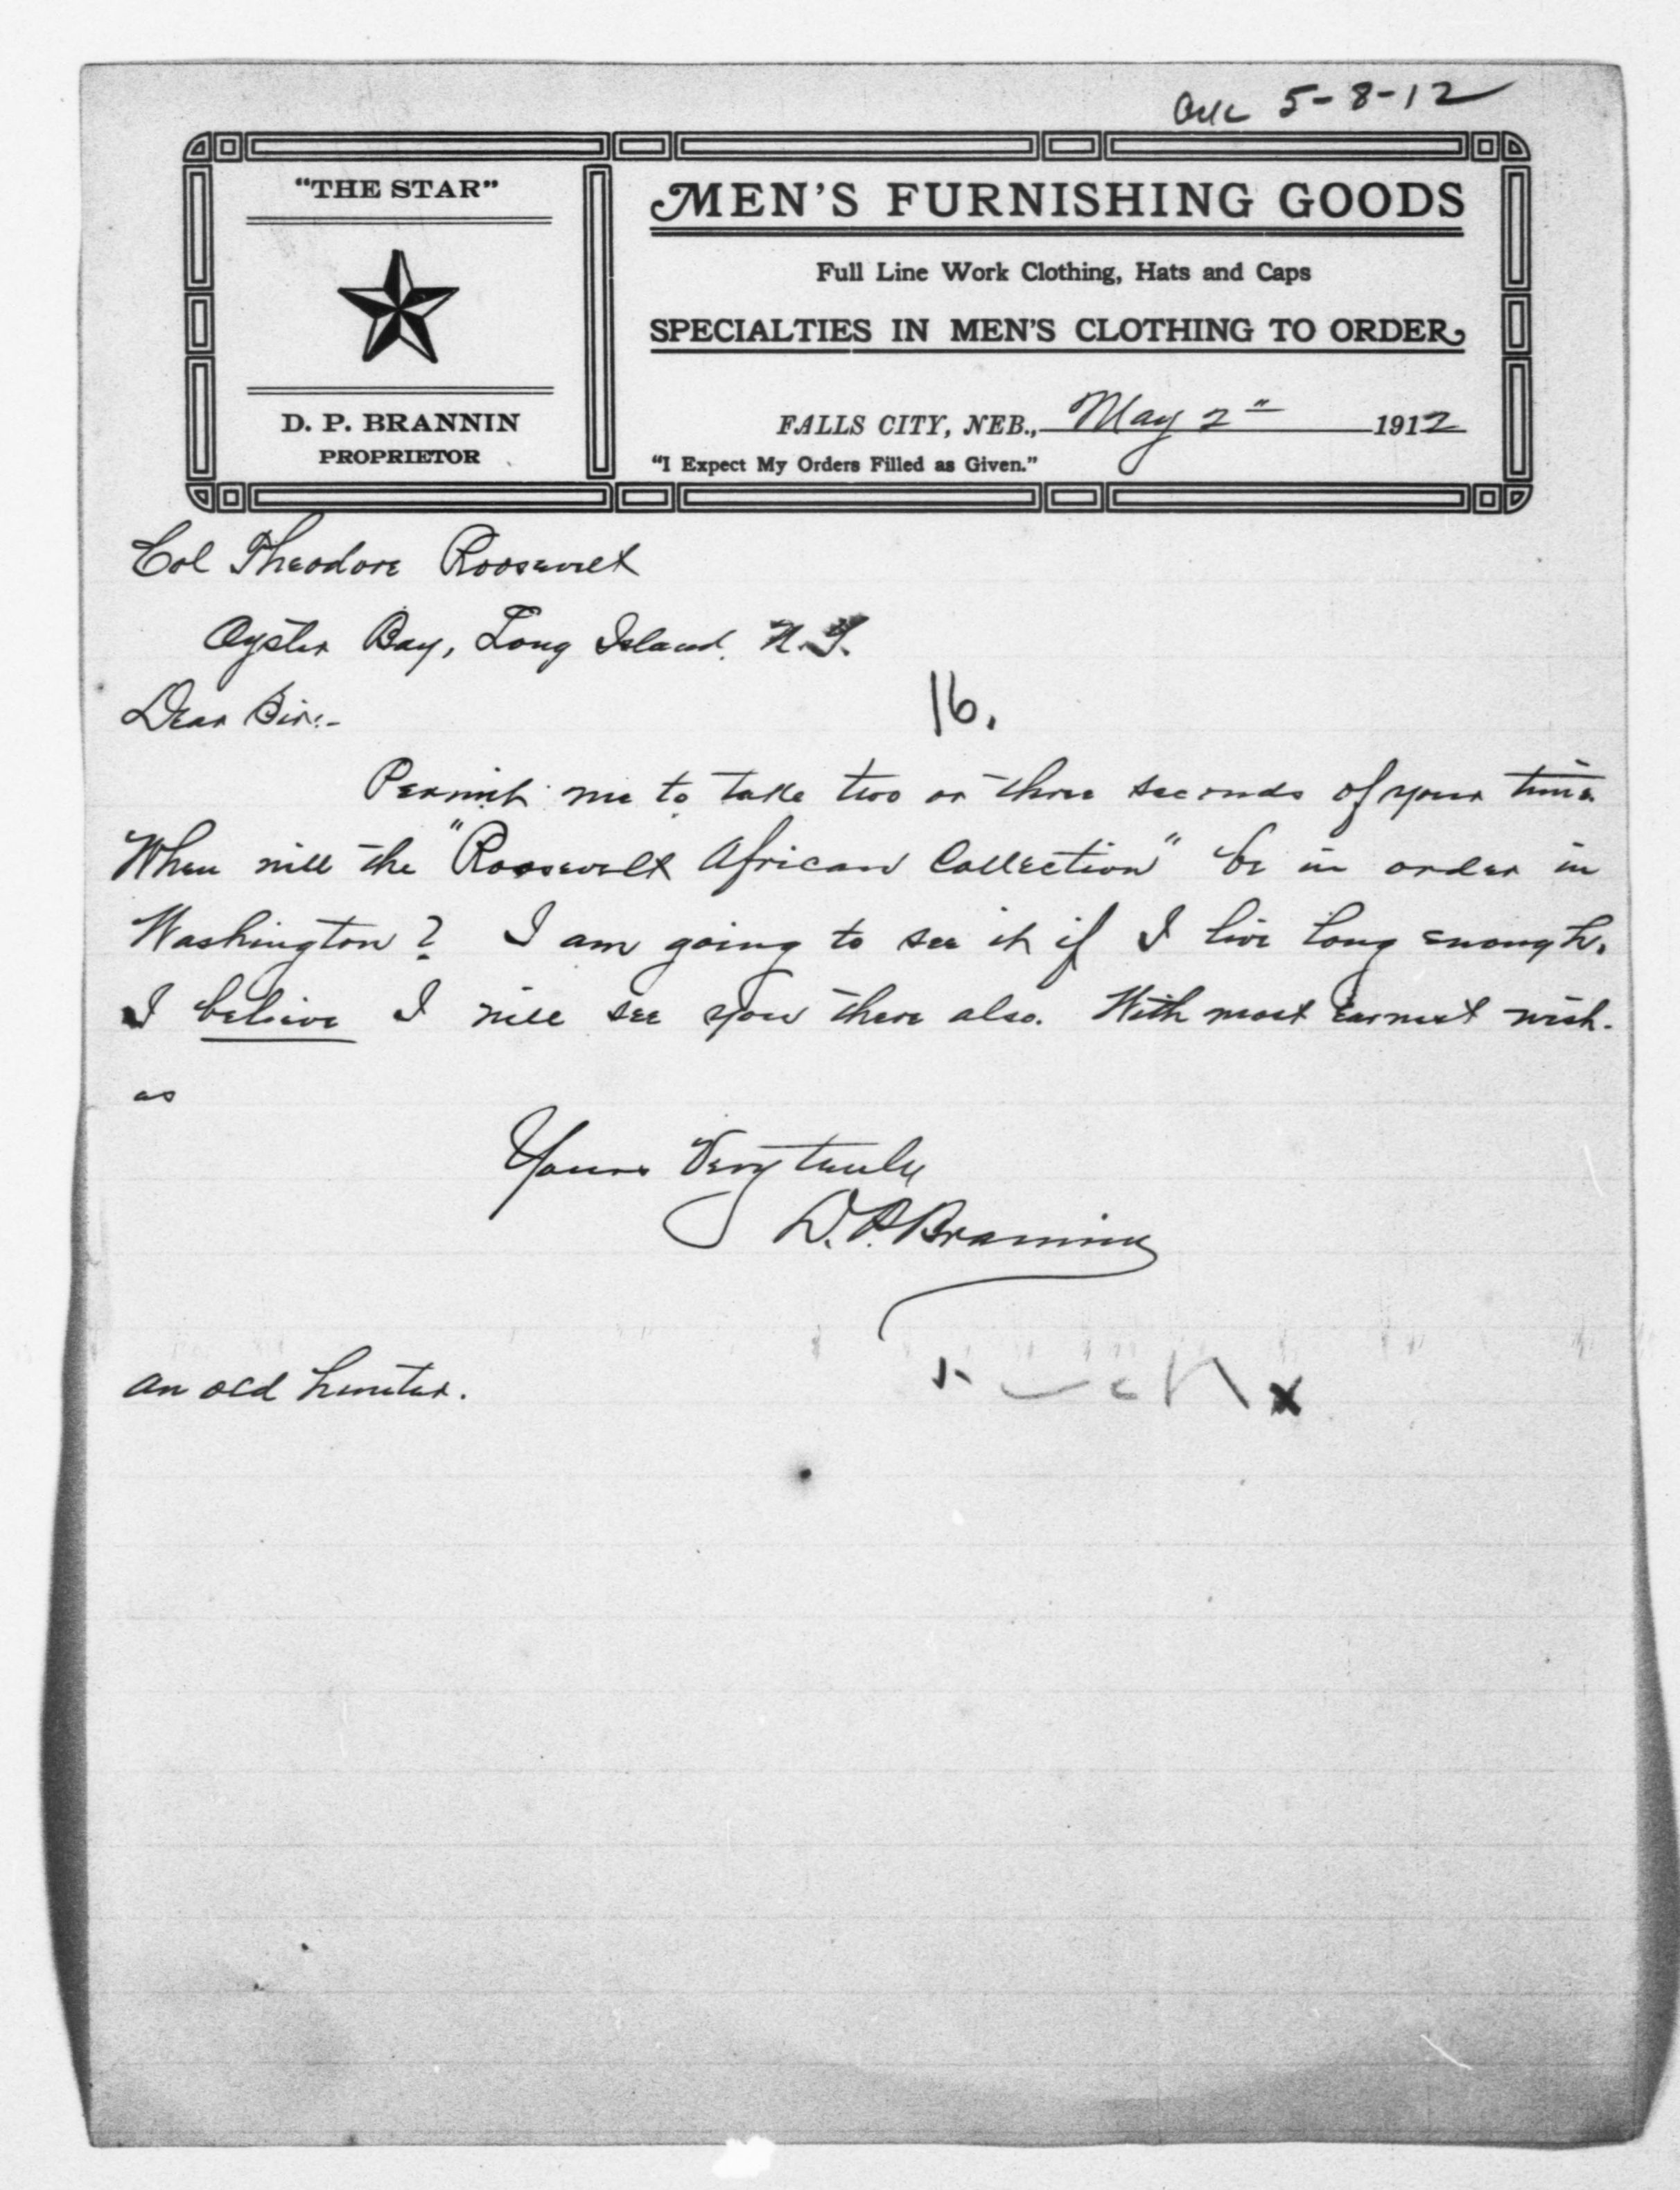 Ack 5-8-12
"THE STAR"
D. P. BRANNIN
PROPRIETOR
MEN'S FURNISHING GOODS
Full Line Work Clothing, Hats and Caps
SPECIALTIES IN MEN'S CLOTHING TO ORDER
FALLS CITY, NEB., May 2" 1912
"I Expect My Orders Filled as Given."
Col Theodore Roosevelt
Oyster Bay, Long Island. N.Y.
Dear Sir:-
16.
Permit me to take two or three seconds of your time.
When will the "Roosevelt African Collection" be in order in
Washington? I am going to see it if I live long enough.
I believe I will see you there also. With most earnest wish-
es
Yours Very truly
D. P. Brannin
An old hunter.
x